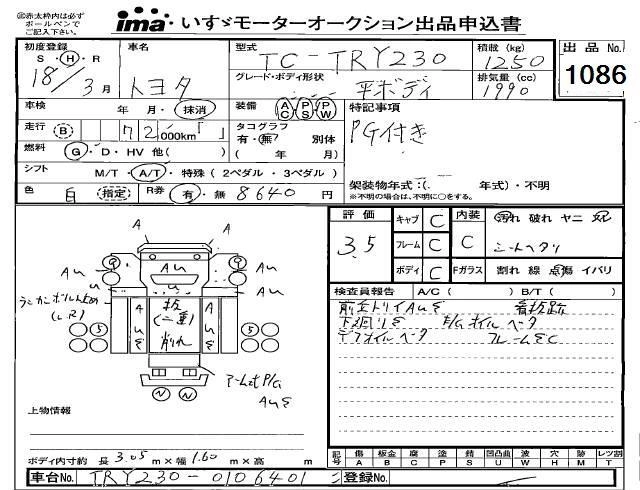 ※赤太枠内は必ず
ボールペンで
ご記入下さい。
ima いすゞモーターオークション出品申込書
初度登録 車名 型式 TC-TRY230 積載 (kg) 1250 出品 No.
S・H・R 18/3月 トヨタ グレード・ボディ形状 平ボディ 排気量 (cc) 1990 1086
車検 年 月・抹消 装備 AC PS PW 特記事項
走行 B 72,000km「 」 タコグラフ 有・無 別体 PG付き
燃料 G・D・HV 他( ) ( 年 月)
シフト M/T・A/T・特殊 (2ペダル・3ペダル) 架装物年式:( 年式)・不明
※不明の場合は、不明に○をする。
色 白 指定 R券 有・無 8640 円
評価 キャブ C 内装 汚れ 破れ ヤニ
3.5 フレーム C C シートヘタリ
ボディ C Fガラス 割れ 線 点傷 イバリ
検査員報告 A/C ( ) B/T ( )
看板跡
下廻り E/Gオイル
デフオイル フレーム
A
A A
AU
板
(二重)
削れ
上物情報
ボディ内寸約 長 3.05 m×幅 1.60 m×高 m
記号 傷 A 板金 B 腐 C 塗 P 錆 S 凹凸曲 U 波 W 穴 H 跡 M レツ割 T
車台No. TRY230-0106401 登録No.